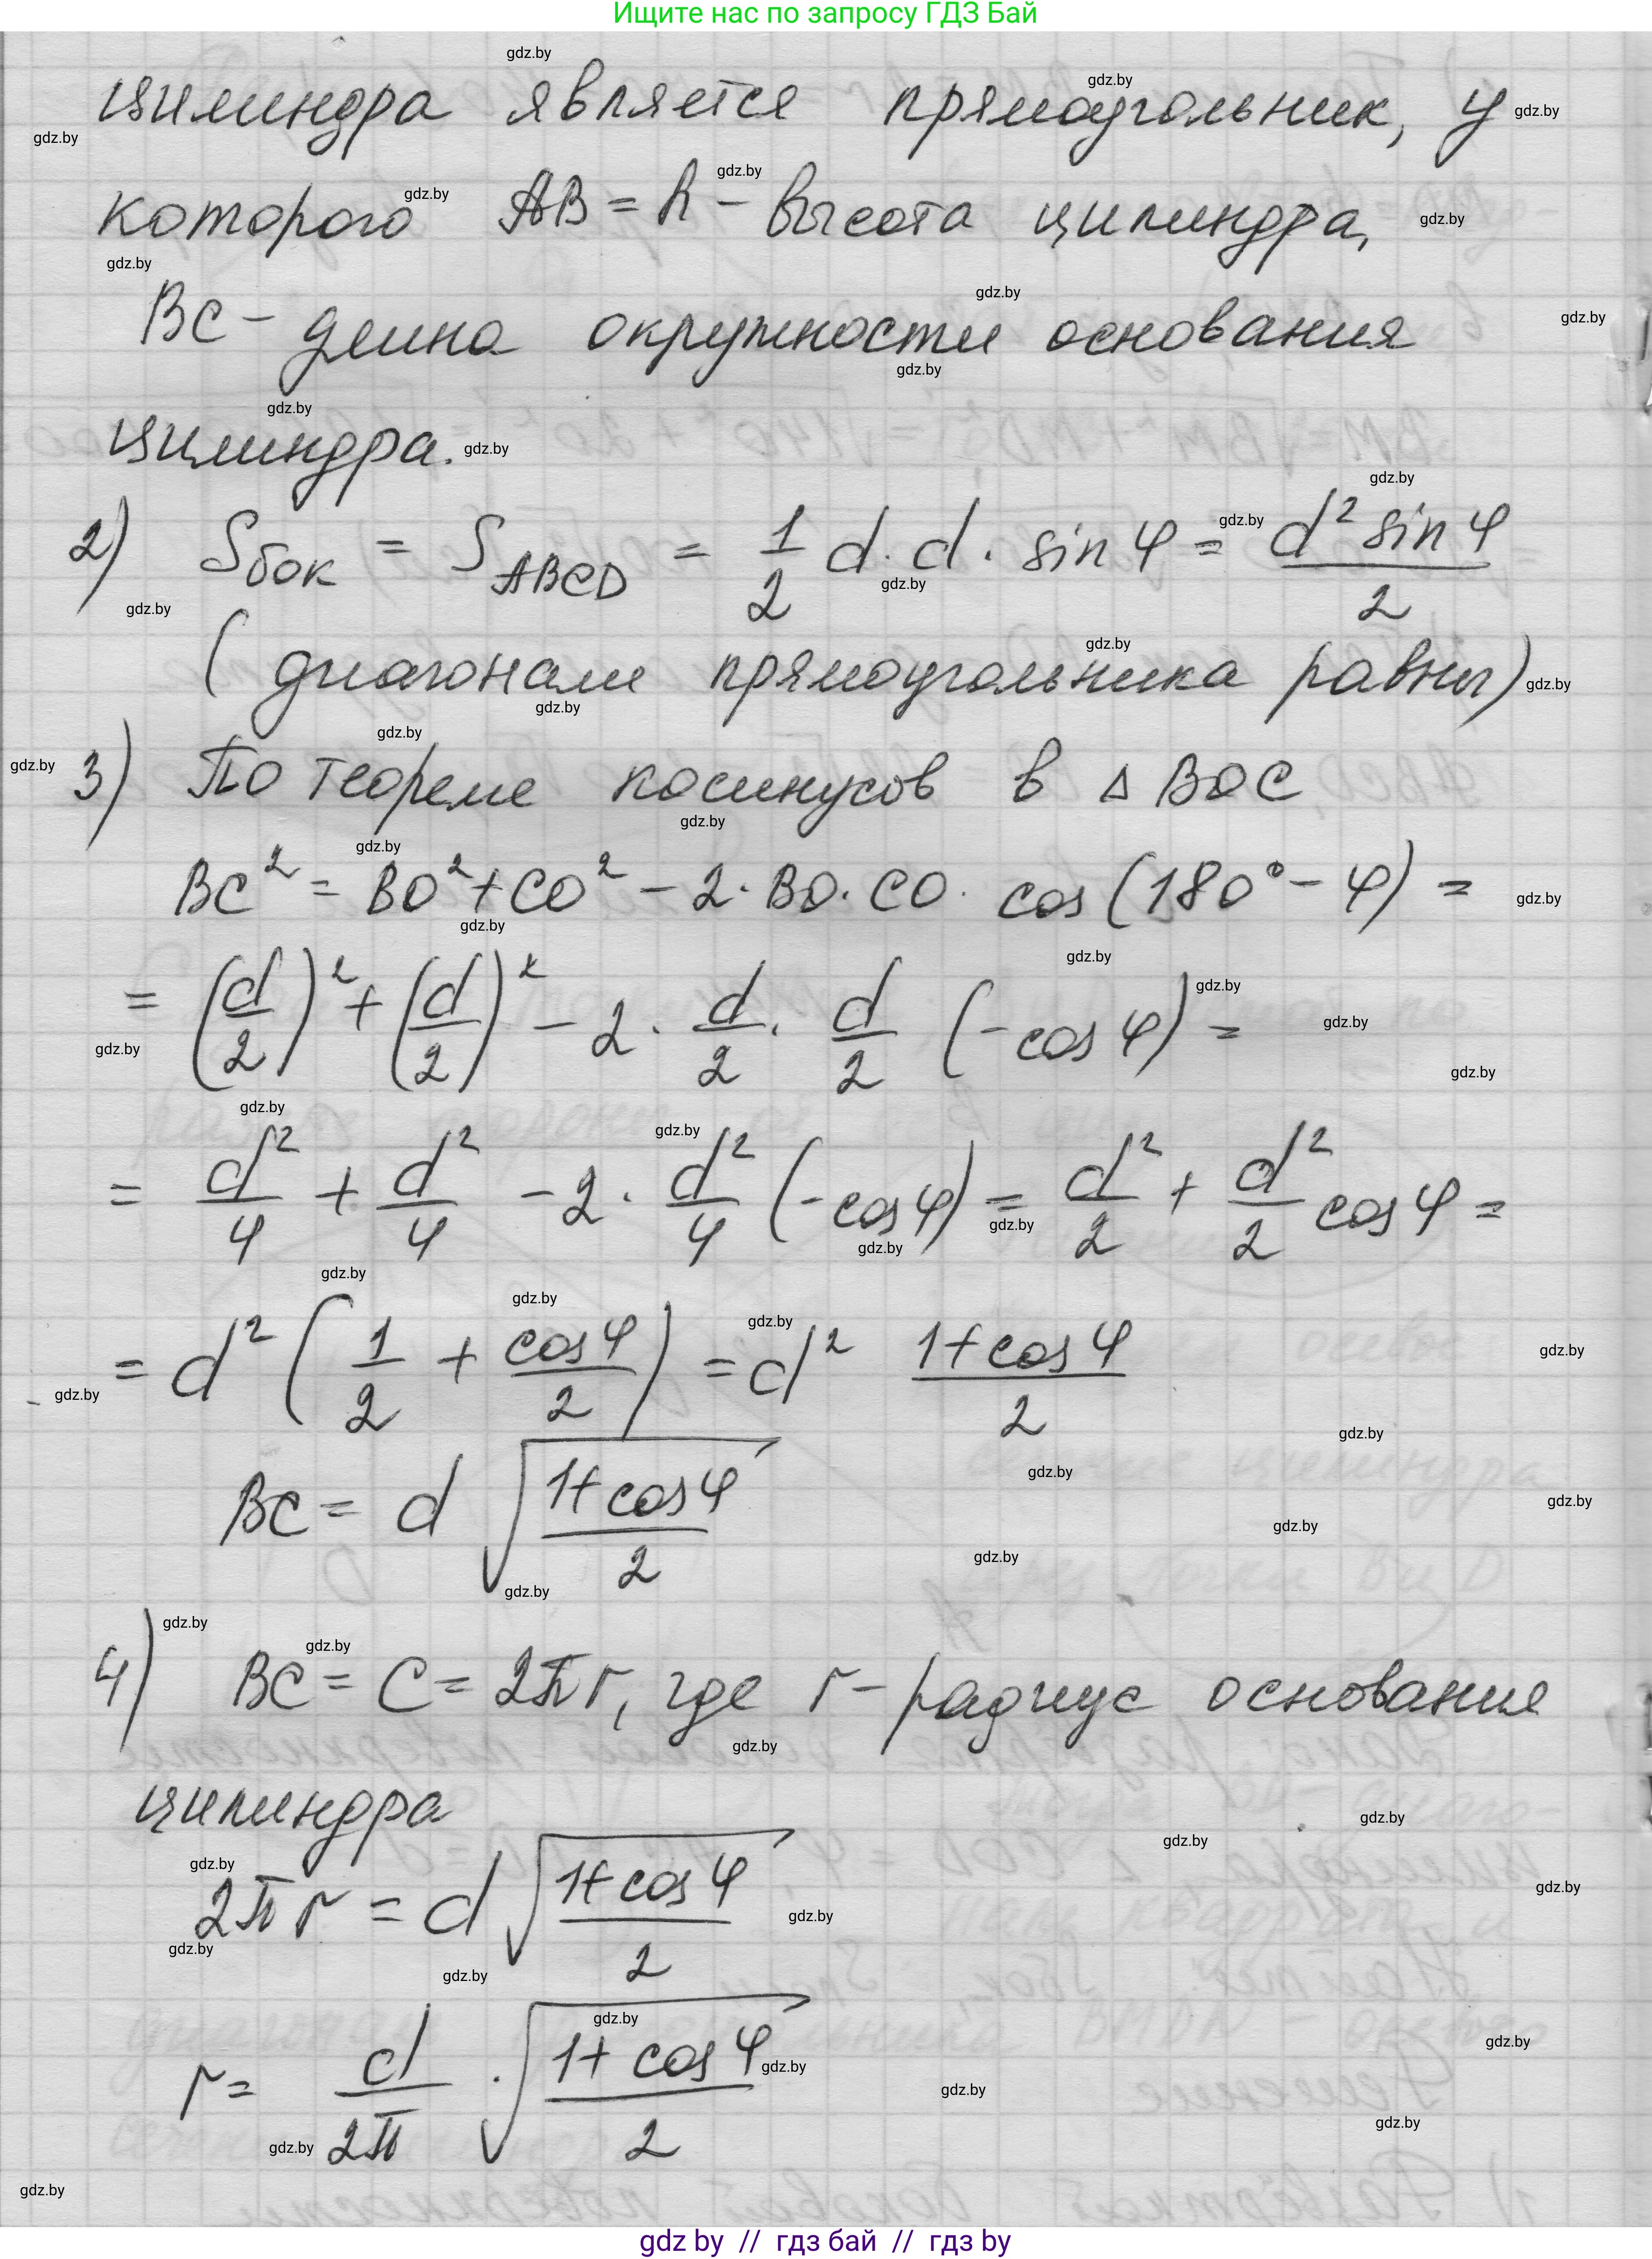 Ищите нас по запросу ГДЗ Бай
цилиндра является прямоугольник, у
которого AB = h - высота цилиндра,
BC - длина окружности основания
цилиндра.
2) Sбок = S_ABCD = 1/2 d · d · sin φ = d² sin φ / 2
( диагонали прямоугольника равны)
3) По теореме косинусов в △ BOC
BC² = BO² + CO² - 2 · BO · CO · cos (180° - φ) =
= (d/2)² + (d/2)² - 2 · d/2 · d/2 (-cos φ) =
= d²/4 + d²/4 - 2 · d²/4 (-cos φ) = d²/2 + d²/2 cos φ =
= d² (1/2 + cos φ/2) = d² (1 + cos φ)/2
BC = d √((1 + cos φ)/2)
4) BC = C = 2πr, где r - радиус основания
цилиндра
2πr = d √((1 + cos φ)/2)
r = d/2π · √((1 + cos φ)/2)
gdz by // гдз бай // гдз by